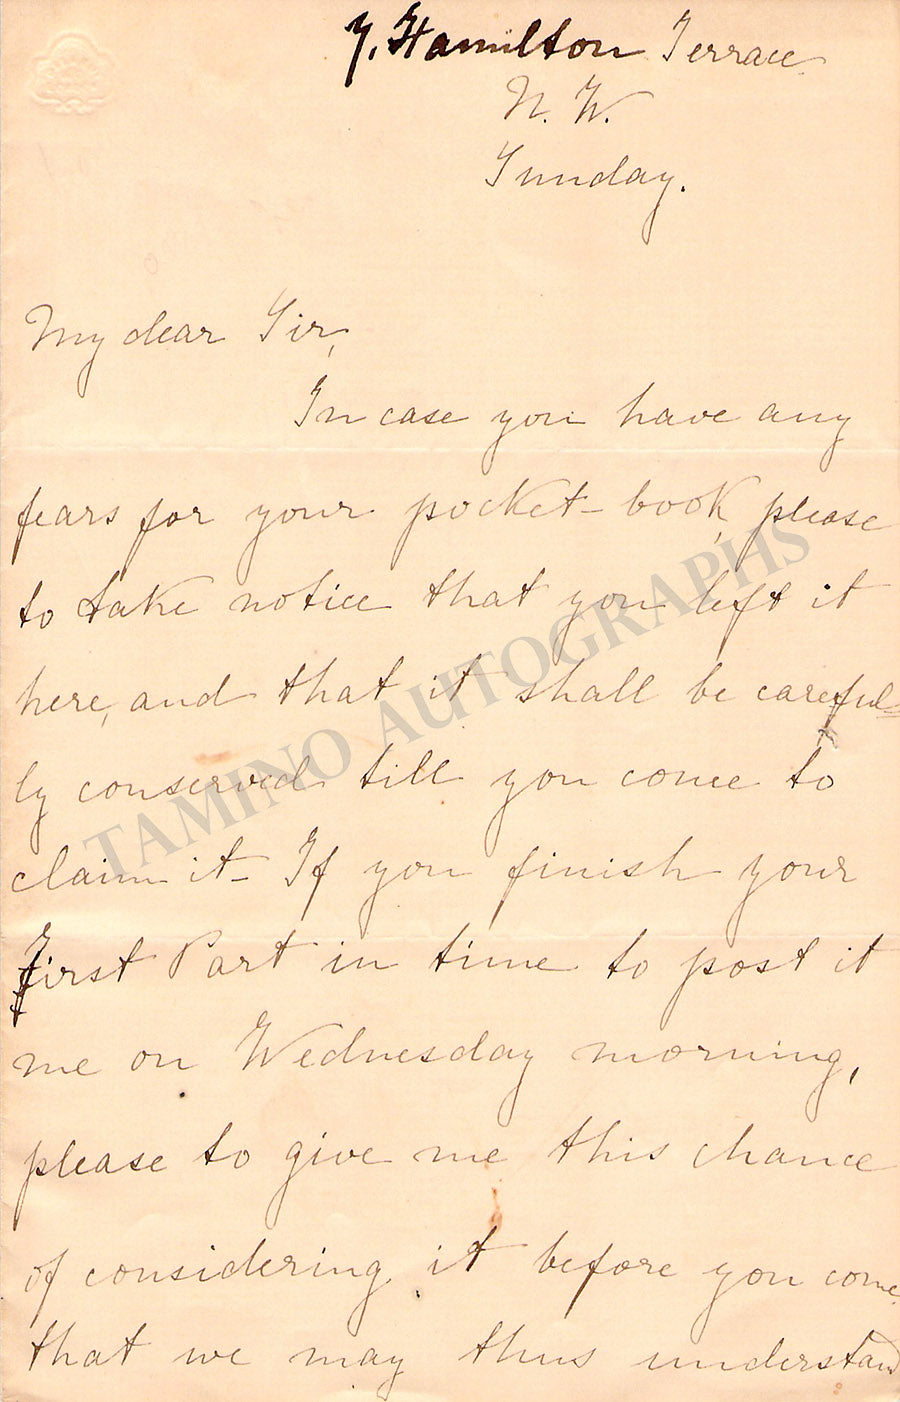 7. Hamilton Terrace
N. W.
Sunday.
My dear Sir,
In case you have any
fears for your pocket-book, please
to take notice that you left it
here, and that it shall be careful=
ly conserved till you come to
claim it - If you finish your
First Part in time to post it
me on Wednesday morning,
please to give me this chance
of considering it before you come,
that we may thus understand
TAMINO AUTOGRAPHS